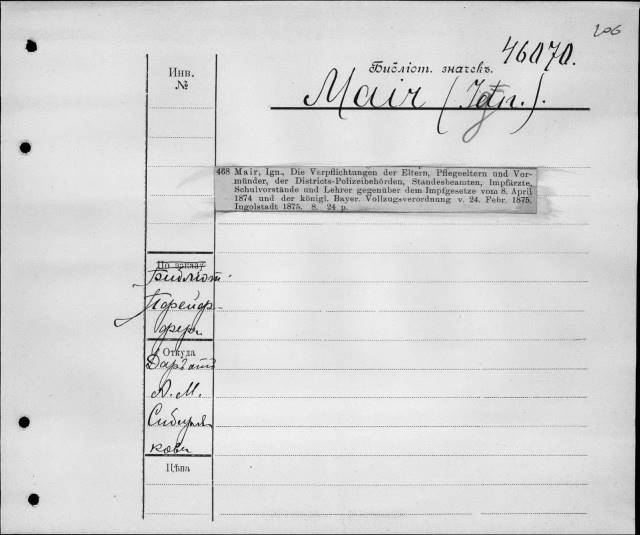 206
46070.
Инв.
№
Библіот. значекъ.
Mair (Ign.).
468 Mair, Ign., Die Verpflichtungen der Eltern, Pflegeeltern und Vor-
münder, der Districts-Polizeibehörden, Standesbeamten, Impfärzte,
Schulvorstände und Lehrer gegenüber dem Impfgesetze vom 8. April
1874 und der königl. Bayer. Vollzugsverordnung v. 24. Febr. 1875.
Ingolstadt 1875. 8. 24 p.
По заказу
Библіот.
Пфейф-
фера
Откуда
Даръ отъ
А. М.
Сибиря
кова
Цѣна